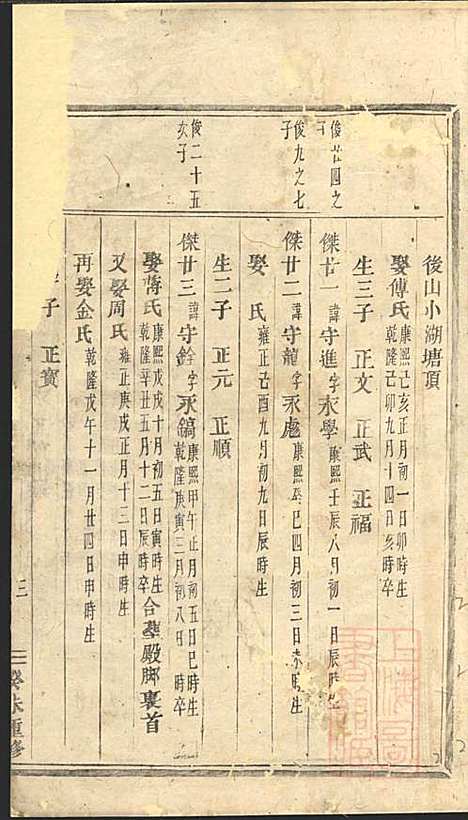 後山小湖塘頂
娶傅氏 康熙己亥正月初一日卯時生
乾隆己卯九月十四日亥時卒
生三子 正文 正武 正福
俊廿四之子
傑廿一 諱守進字永學 康熙壬辰八月初一日辰時生
俊九之七子
傑廿二 諱守龍字永彪 康熙癸巳四月初三日未時生
娶 氏 雍正己酉九月初九日辰時生
生二子 正元 正順
俊二十五次子
傑廿三 諱守銓字永鎬 康熙甲午正月初五日巳時生
乾隆庚寅三月初八日 時卒
娶蔣氏 康熙戊戌十月初五日寅時生
乾隆辛丑五月十二日辰時卒 合墓殿脚裏首
又娶周氏 雍正庚戌正月十三日申時生
再娶金氏 乾隆戊午十一月廿四日申時生
子 正寶
三
癸未重修